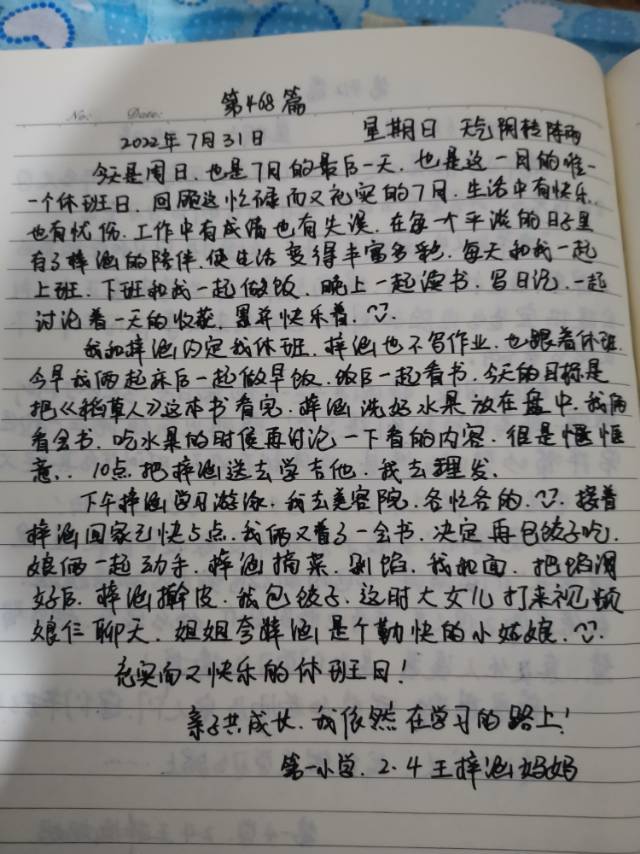 第468篇
No: Date:
2022年7月31日 星期日 天气阴转阵雨
今天是周日.也是7月的最后一天.也是这一月的唯一
一个休班日.回顾这忙碌而又充实的7月.生活中有快乐.
也有忧伤.工作中有成绩也有失误.在每一个平淡的日子里
有了梓涵的陪伴.使生活变得丰富多彩.每天和我一起
上班.下班和我一起做饭.晚上一起读书.写日记.一起
讨论着一天的收获.累并快乐着.
我和梓涵约定我休班.梓涵也不写作业.也跟着休班.
今早我俩起床后一起做早饭.饭后一起看书.今天的目标是
把《稻草人》这本书看完.梓涵洗好水果放在盘中.我俩
看会书.吃水果的时候再讨论一下看的内容.很是惬
意..10点把梓涵送去学吉他.我去理发.
下午梓涵学习游泳.我去美容院.各忙各的.接着
梓涵回家已快5点.我俩又看了一会书.决定再包饺子吃.
娘俩一起动手.梓涵摘菜.剁馅.我和面.把馅调
好后.梓涵擀皮.我包饺子.这时大女儿打来视频
娘仨聊天.姐姐夸梓涵是个勤快的小姑娘.
充实而又快乐的休班日!
亲子共成长.我依然在学习的路上!
第一小学.2.4王梓涵妈妈